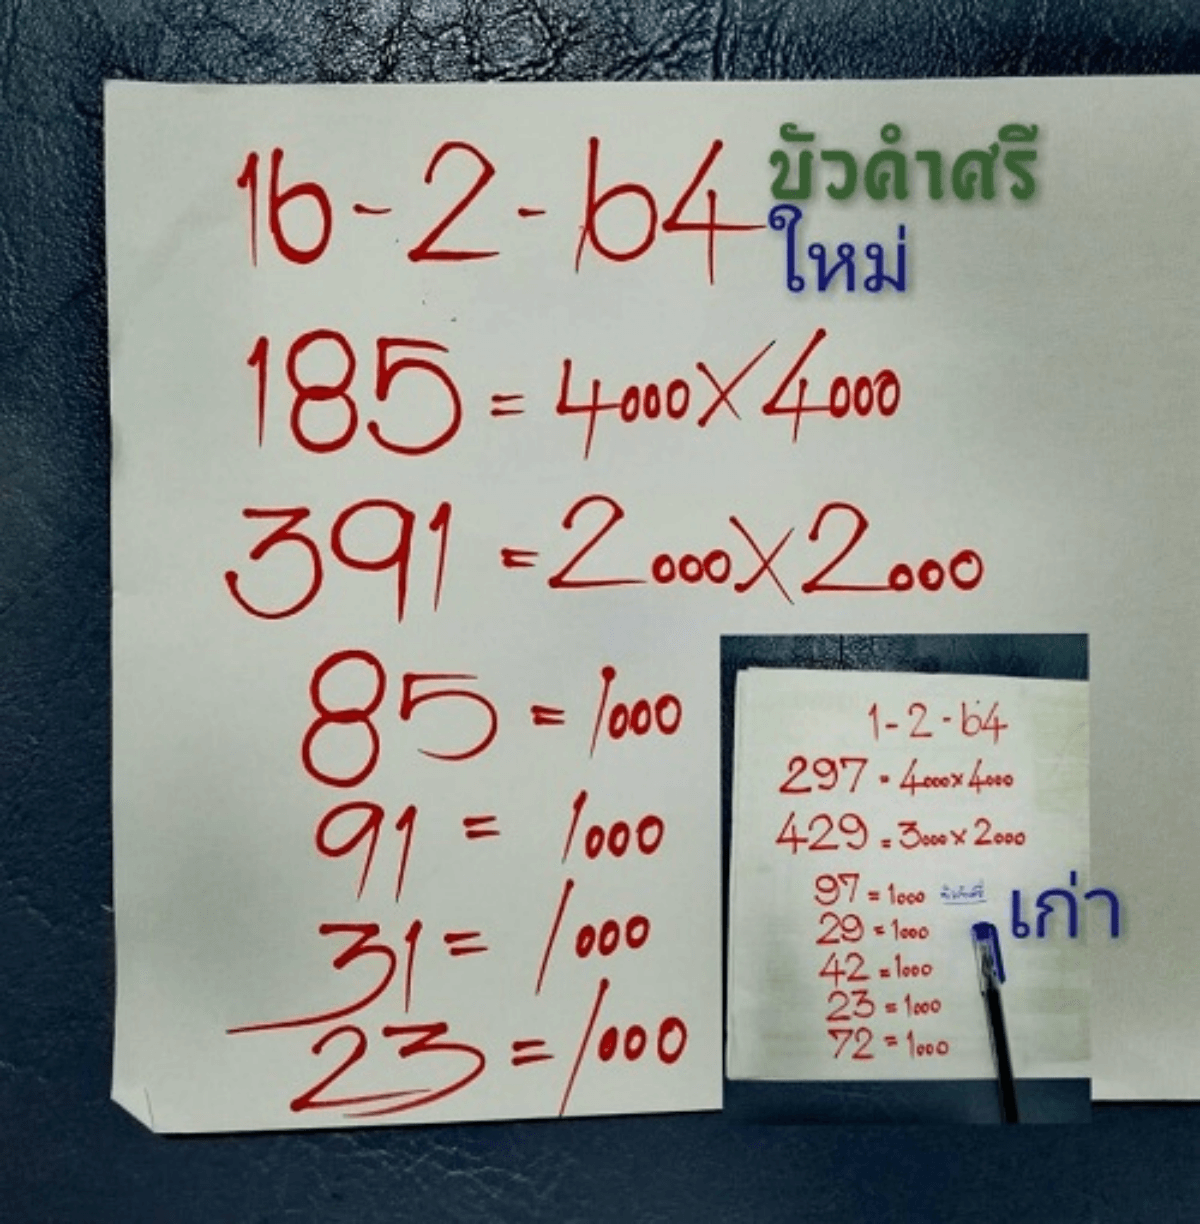 16-2-64 บัวคำศรี
ใหม่
185 = 4000X4000
391 = 2000X2000
85 = 1000
91 = 1000
31 = 1000
23 = 1000
1-2-64
297 - 4000x4000
429 = 3000x2000
97 = 1000
29 = 1000
42 = 1000
23 = 1000
72 = 1000
เก่า